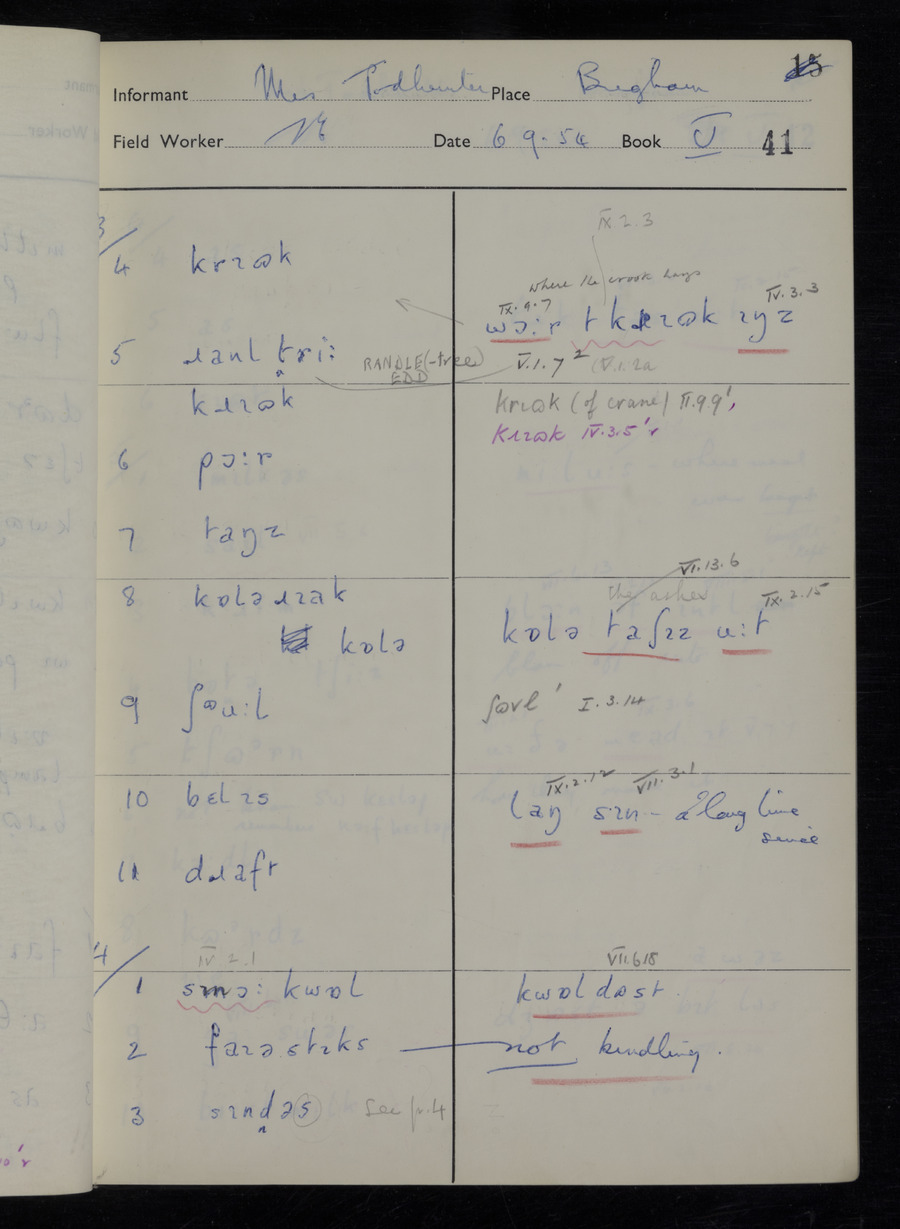 15
Informant Mrs Todhunter Place Brigham
Field Worker NE Date 6 9.54 Book V 41
3/
IX.2.3
4 krɪʊk
where the crook hangs
IX.9.7 IV.3.3
wɔːr t krɪʊk ɪŋz
5 ɹanl triː RANDLE(-tree) EDD
V.1.7² (V.1.2a
kɹɪʊk
krɪʊk (of crane) II.9.9',
kɹɪʊk IV.3.5'r
6 pɔːr
7 taŋz
VI.13.6
8 kolə ɹɪak
the ashes IX.2.15
kolə kolə taʃɪz uːt
9 ʃəuːl
ʃovl' I.3.14
10 belɪs
IX.2.12 VII.3.1
laŋ sɪn - a long time
since
11 dɹaft
4/
IV.2.1 VII.6.18
1 smɔː kwol kwol dost.
2 faɪəstɪks not kindling.
3 sɪndəs See p.4